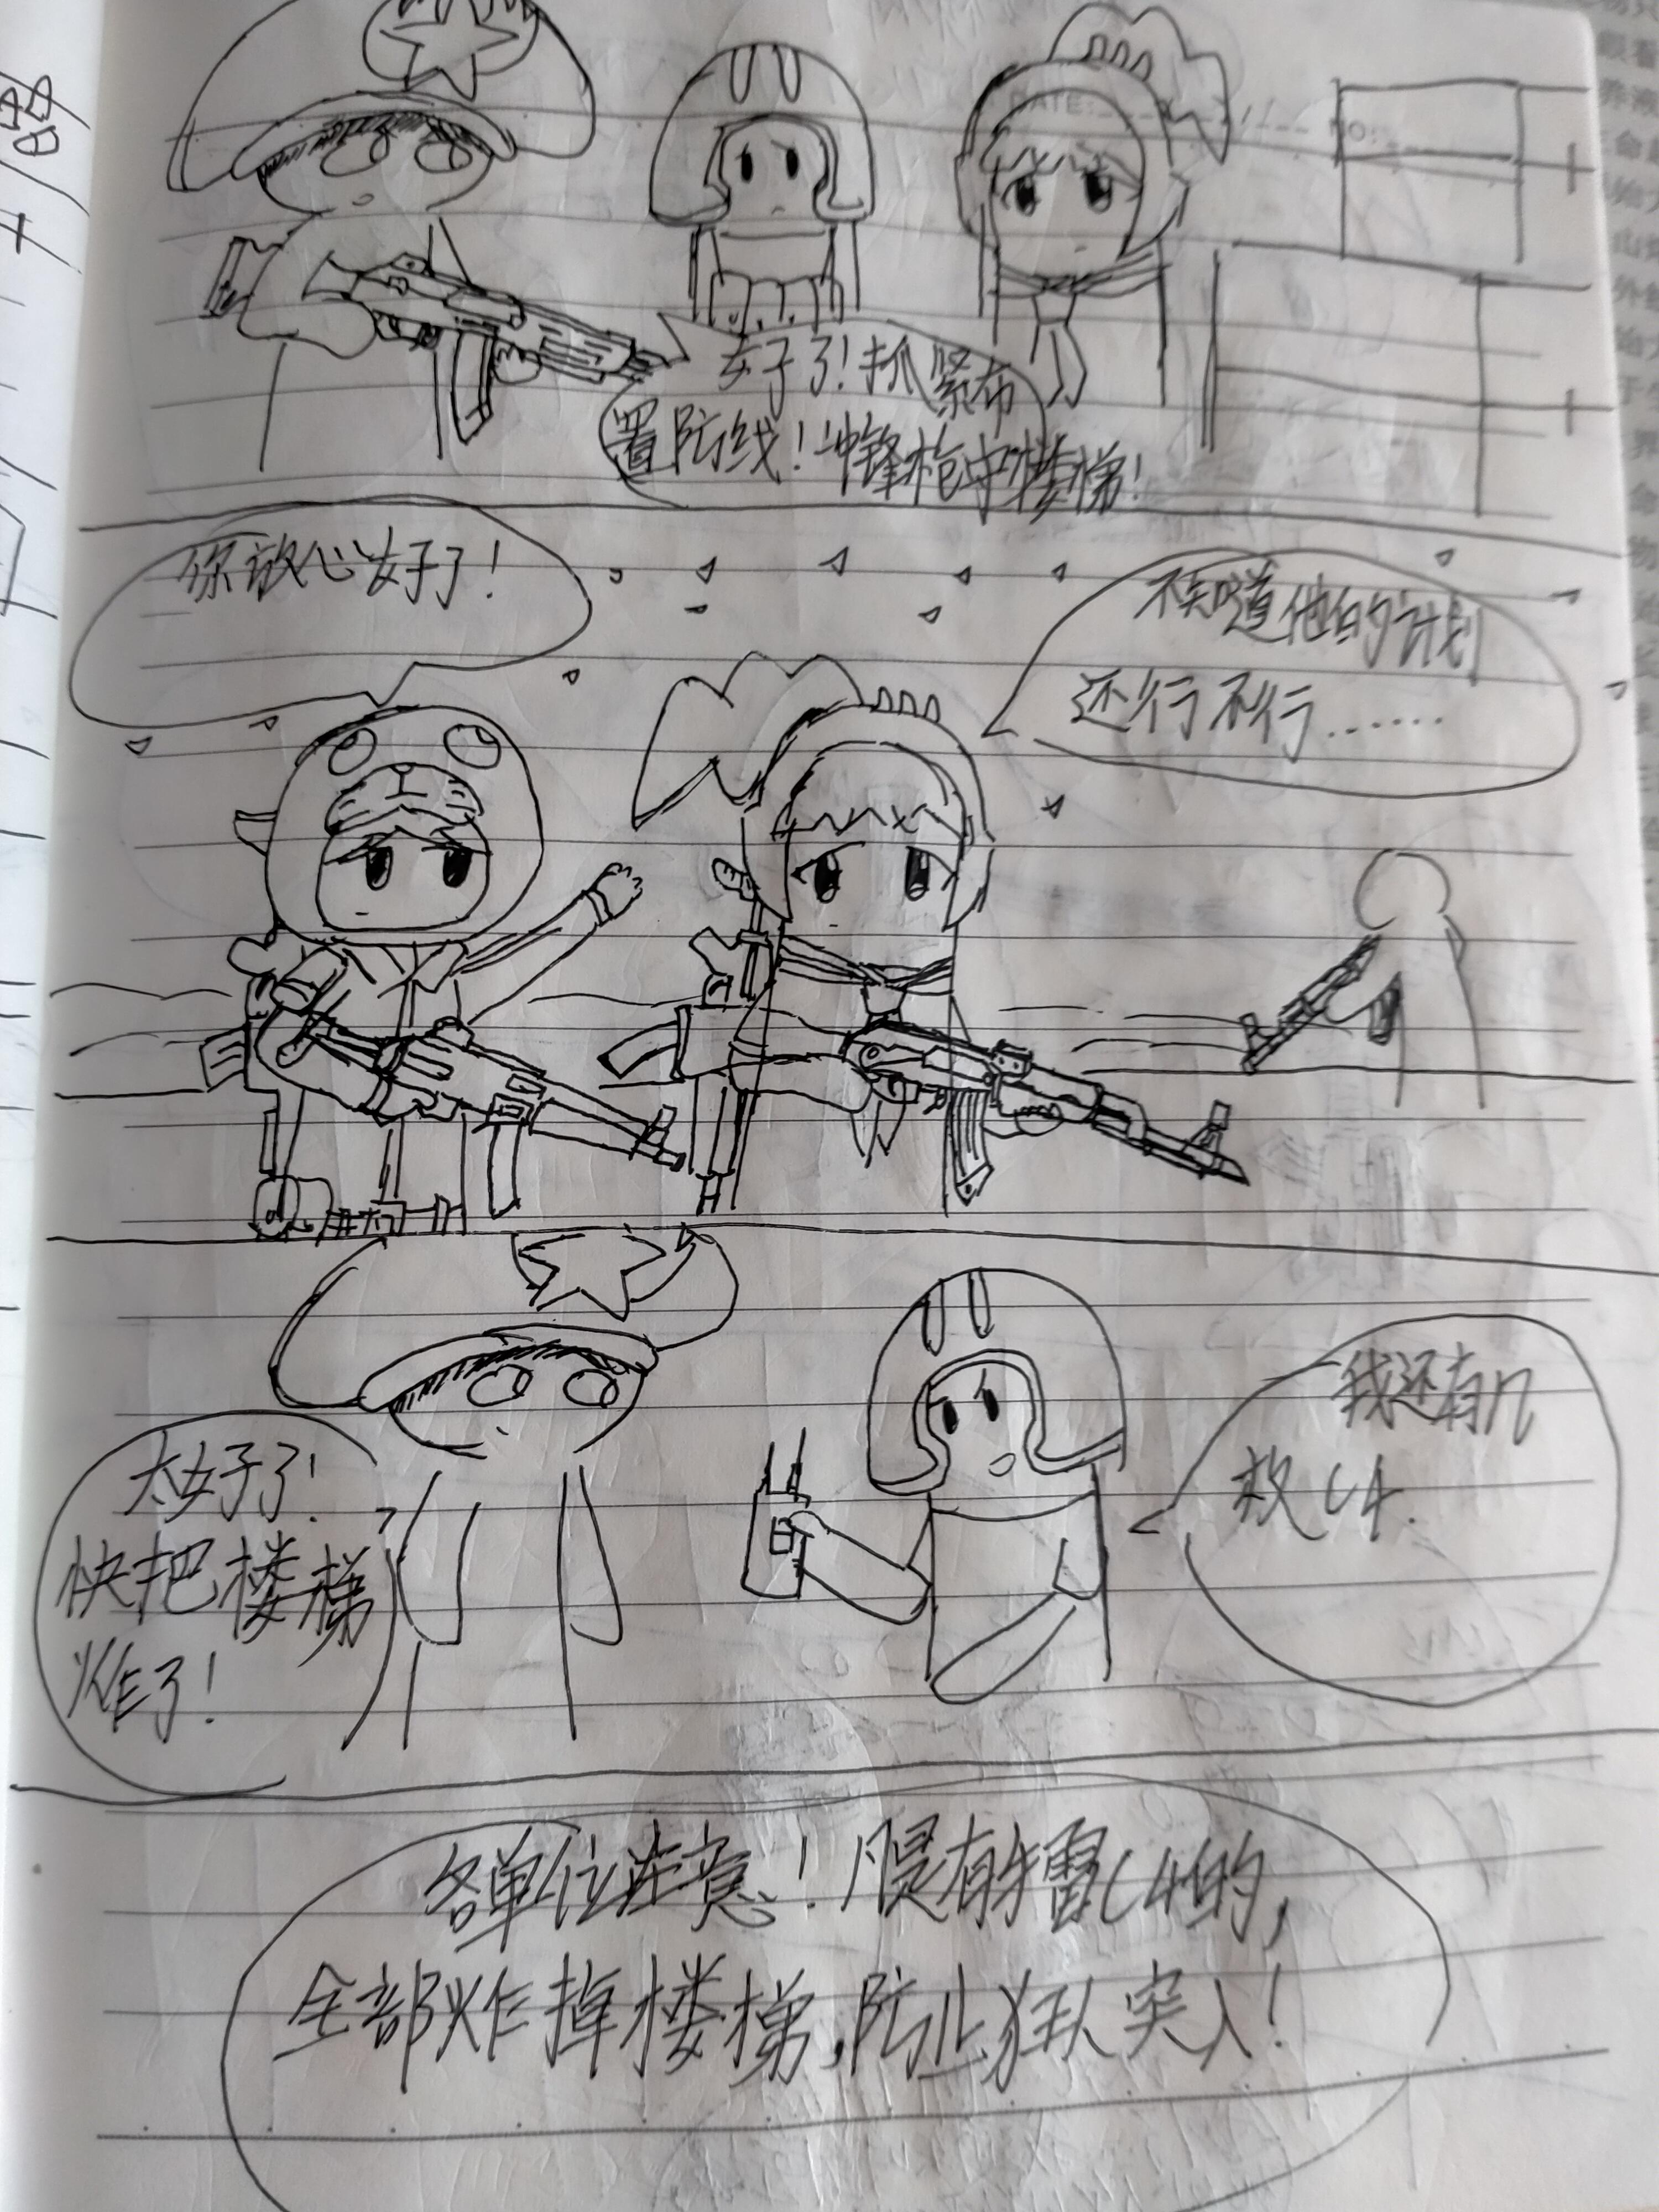 DATE: NO:
好了！抓紧布
置防线！冲锋枪守楼梯！
你放心好了！
不知道他的计划
还行不行……
太好了！
快把楼梯
炸了！
我还有几
枚C4.
各单位注意！凡是有手雷C4的，
全部炸掉楼梯，防止狂队突入！